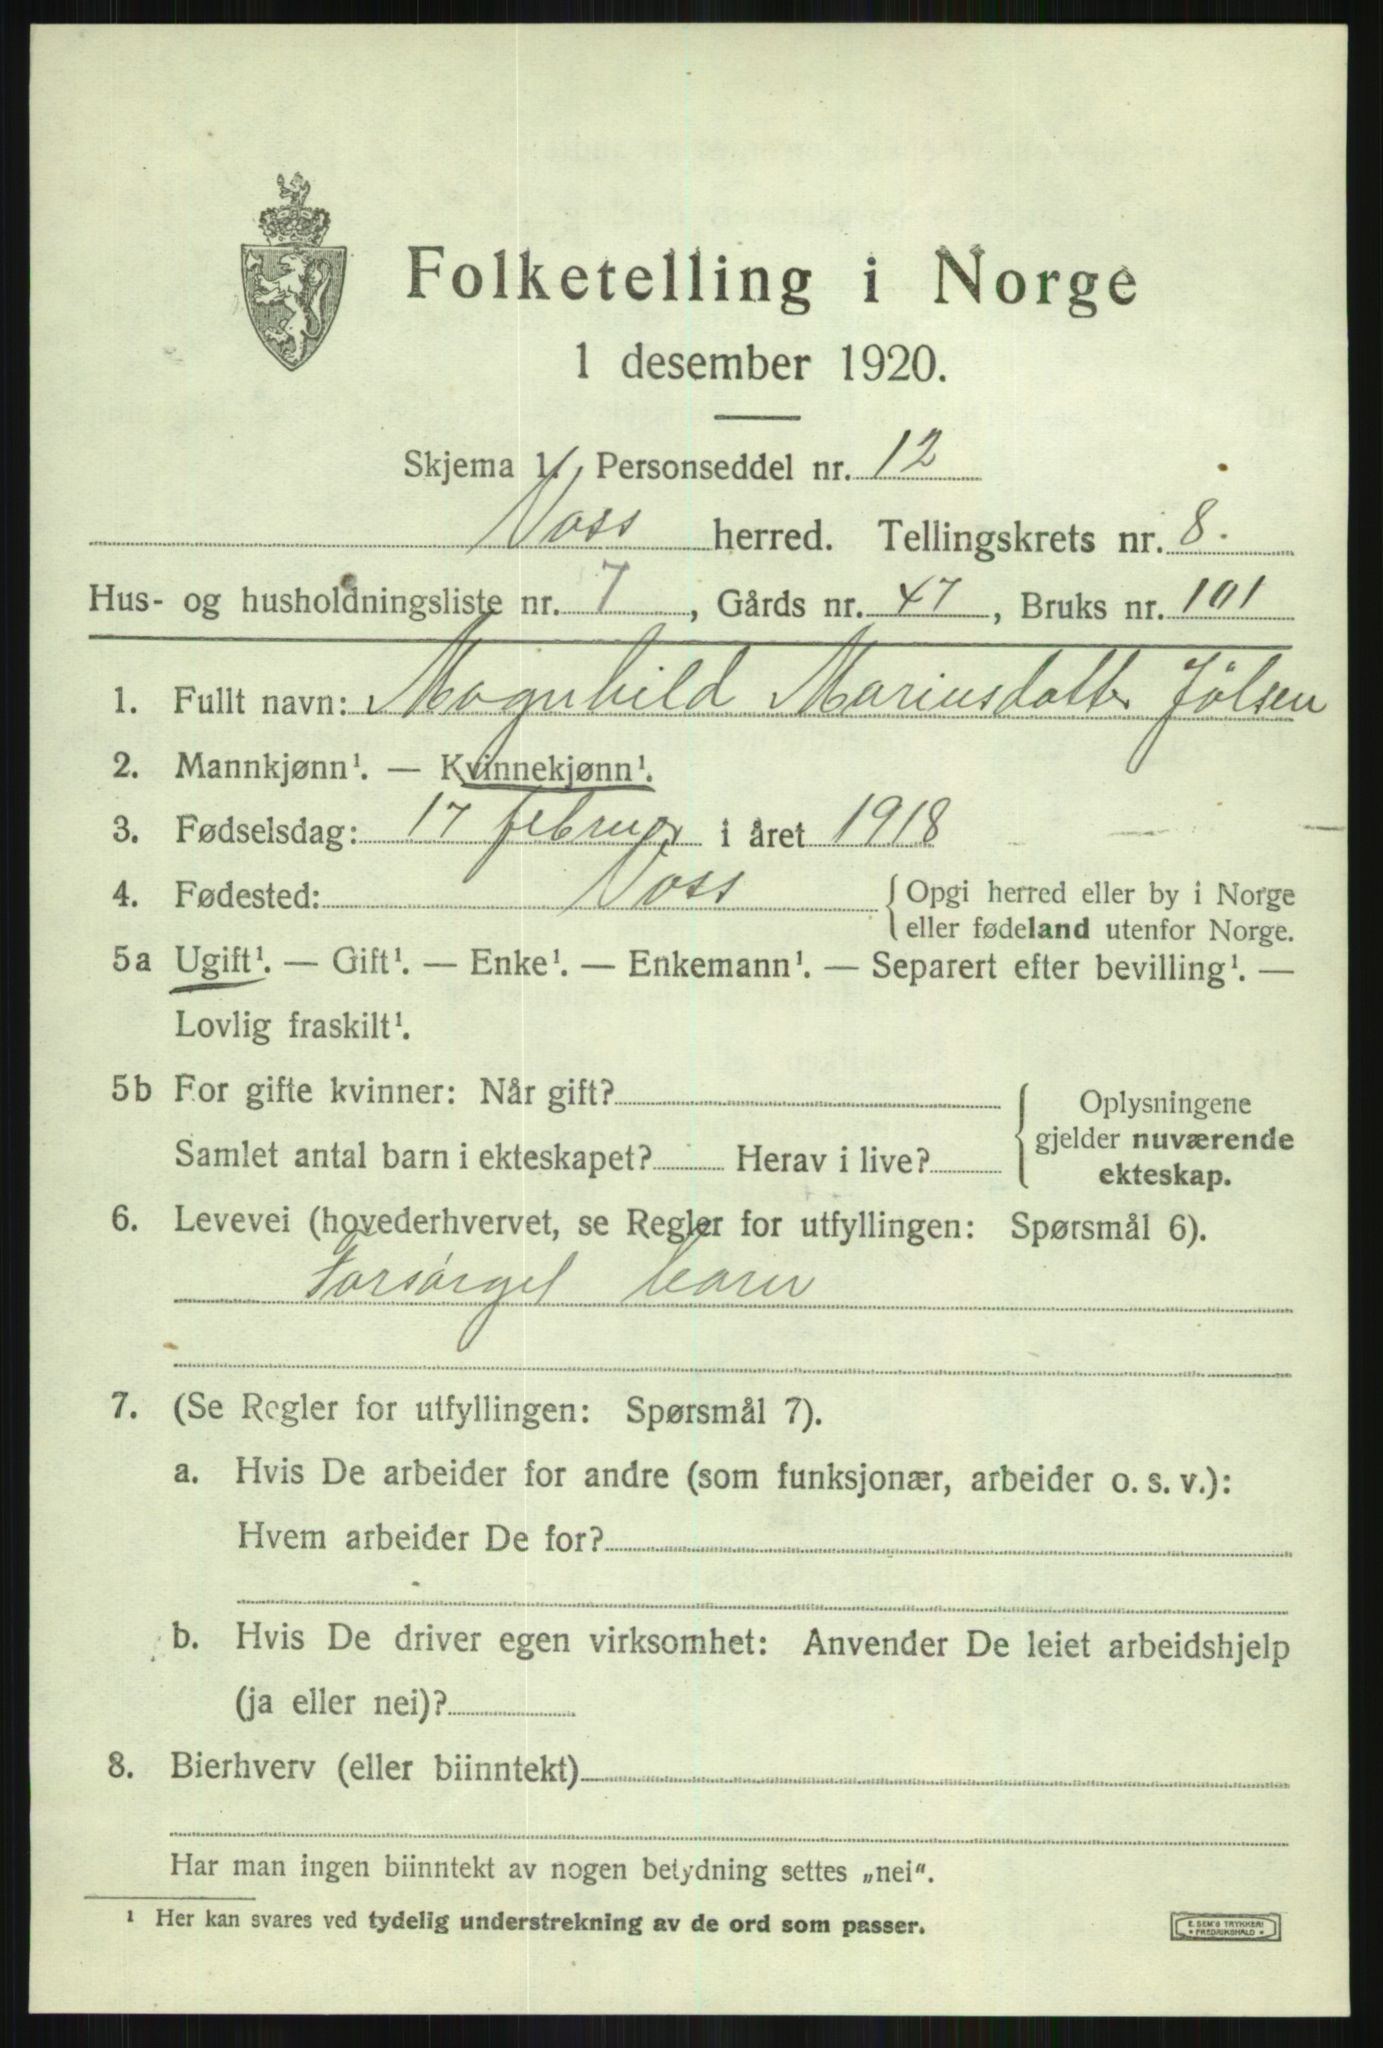 Folketelling i Norge
1 desember 1920.
Skjema 1. Personseddel nr. 12
Voss herred. Tellingskrets nr. 8.
Hus- og husholdningsliste nr. 7, Gårds nr. 47, Bruks nr. 101
1. Fullt navn: Magnhild Mariusdatter Jølsen
2. Mannkjønn¹. — Kvinnekjønn¹.
3. Fødselsdag: 17 februar i året 1918
4. Fødested: Voss { Opgi herred eller by i Norge
eller fødeland utenfor Norge.
5a Ugift¹. — Gift¹. — Enke¹. — Enkemann¹. — Separert efter bevilling¹. —
Lovlig fraskilt¹.
5b For gifte kvinner: Når gift? { Oplysningene
gjelder nuværende
Samlet antal barn i ekteskapet? Herav i live?
ekteskap.
6. Levevei (hovederhvervet, se Regler for utfyllingen: Spørsmål 6).
Forsørget barn
7. (Se Regler for utfyllingen: Spørsmål 7).
a. Hvis De arbeider for andre (som funksjonær, arbeider o. s. v.):
Hvem arbeider De for?
b. Hvis De driver egen virksomhet: Anvender De leiet arbeidshjelp
(ja eller nei)?
8. Bierhverv (eller biinntekt)
Har man ingen biinntekt av nogen betydning settes „nei“.
¹ Her kan svares ved tydelig understrekning av de ord som passer.
E. SEM'S TRYKKERI
* FREDRIKSHALD *